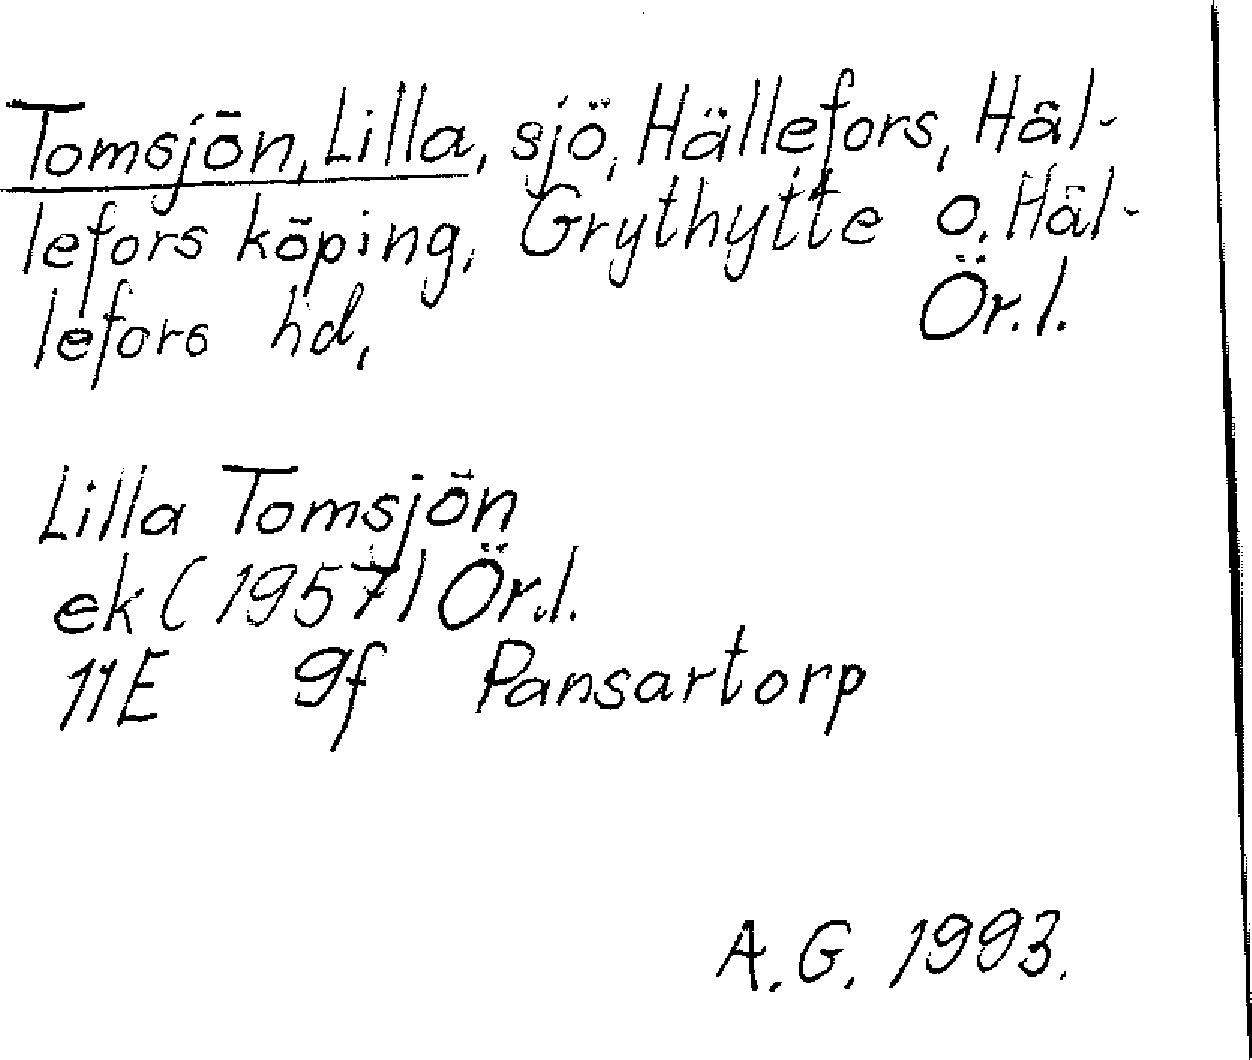 Tomsjön, Lilla, sjö, Hällefors, Häl-
lefors köping, Grythytte o. Häl-
lefors hd, Ör.l.
Lilla Tomsjön
ek (1957) Ör.l.
11E 9f Pansartorp
A.G. 1993.